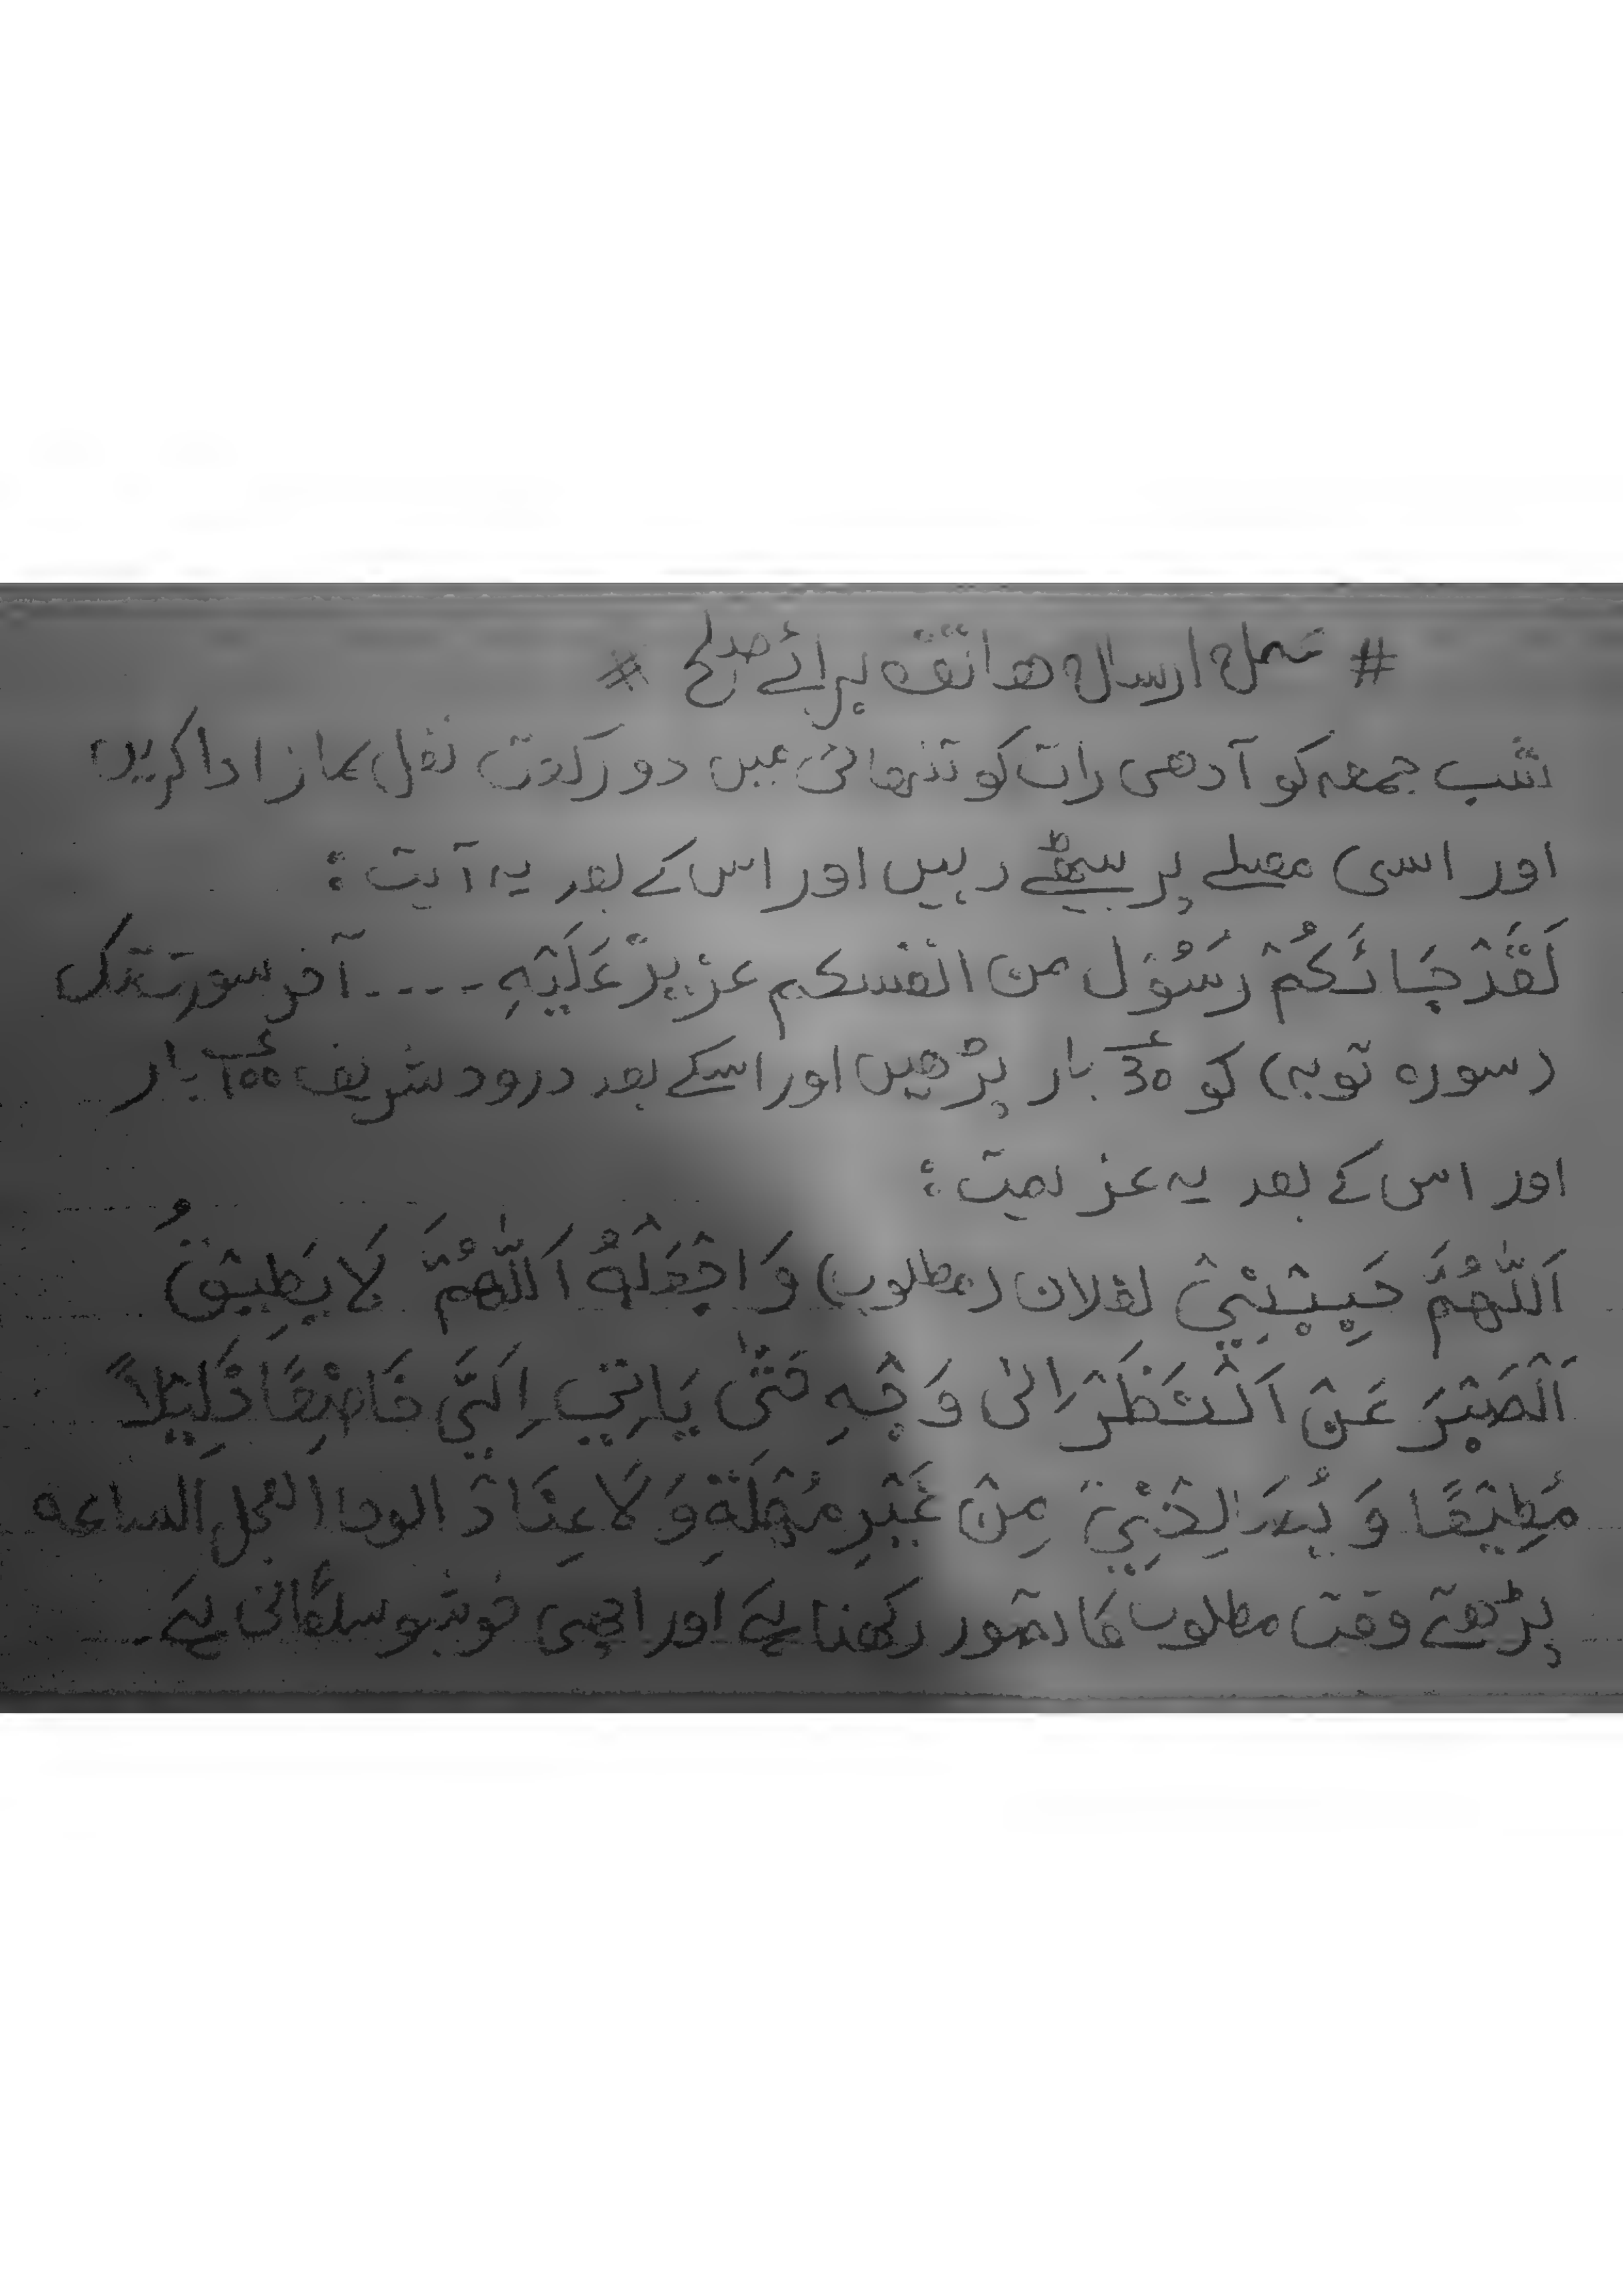 # عمل ارسال ھاتف برائے صلح #
شب جمعہ کو آدھی رات کو تنہائی میں دو رکعت نفل نماز ادا کریں
اور اسی مصلے پر بیٹھے رہیں اور اس کے بعد یہ آیت :
لَقَدْ جَائَكُمْ رَسُوْل من انفسکم عزیزٌ عَلَيْهِ ---- آخر سورت تک
(سورہ توبہ) کو 30 بار پڑھیں اور اسکے بعد درود شریف 100 بار
اور اس کے بعد یہ عزیمت :
اَللّٰهُمَّ حَبِبْنِيْ لفلان (مطلوب) وَاجْعَلْهُ اَللّٰهُمَّ لَا يَطِيْقُ
اَلْصَبْرَ عَنْ اَلْنَظَرَ الی وَجْهِ حَتّٰی يَاتِي اِلَيَّ خَاضِعًا ذَلِيْلاً
مُطِيْعًا وَ لِذِيْ مِنْ غَيْرِ مُهْلَةِ وَلَا عِنَادْ الوحا العجل الساعه
پڑھتے وقت مطلوب کا تصور رکھنا ہے اور اچھی خوشبو سلگانی ہے۔